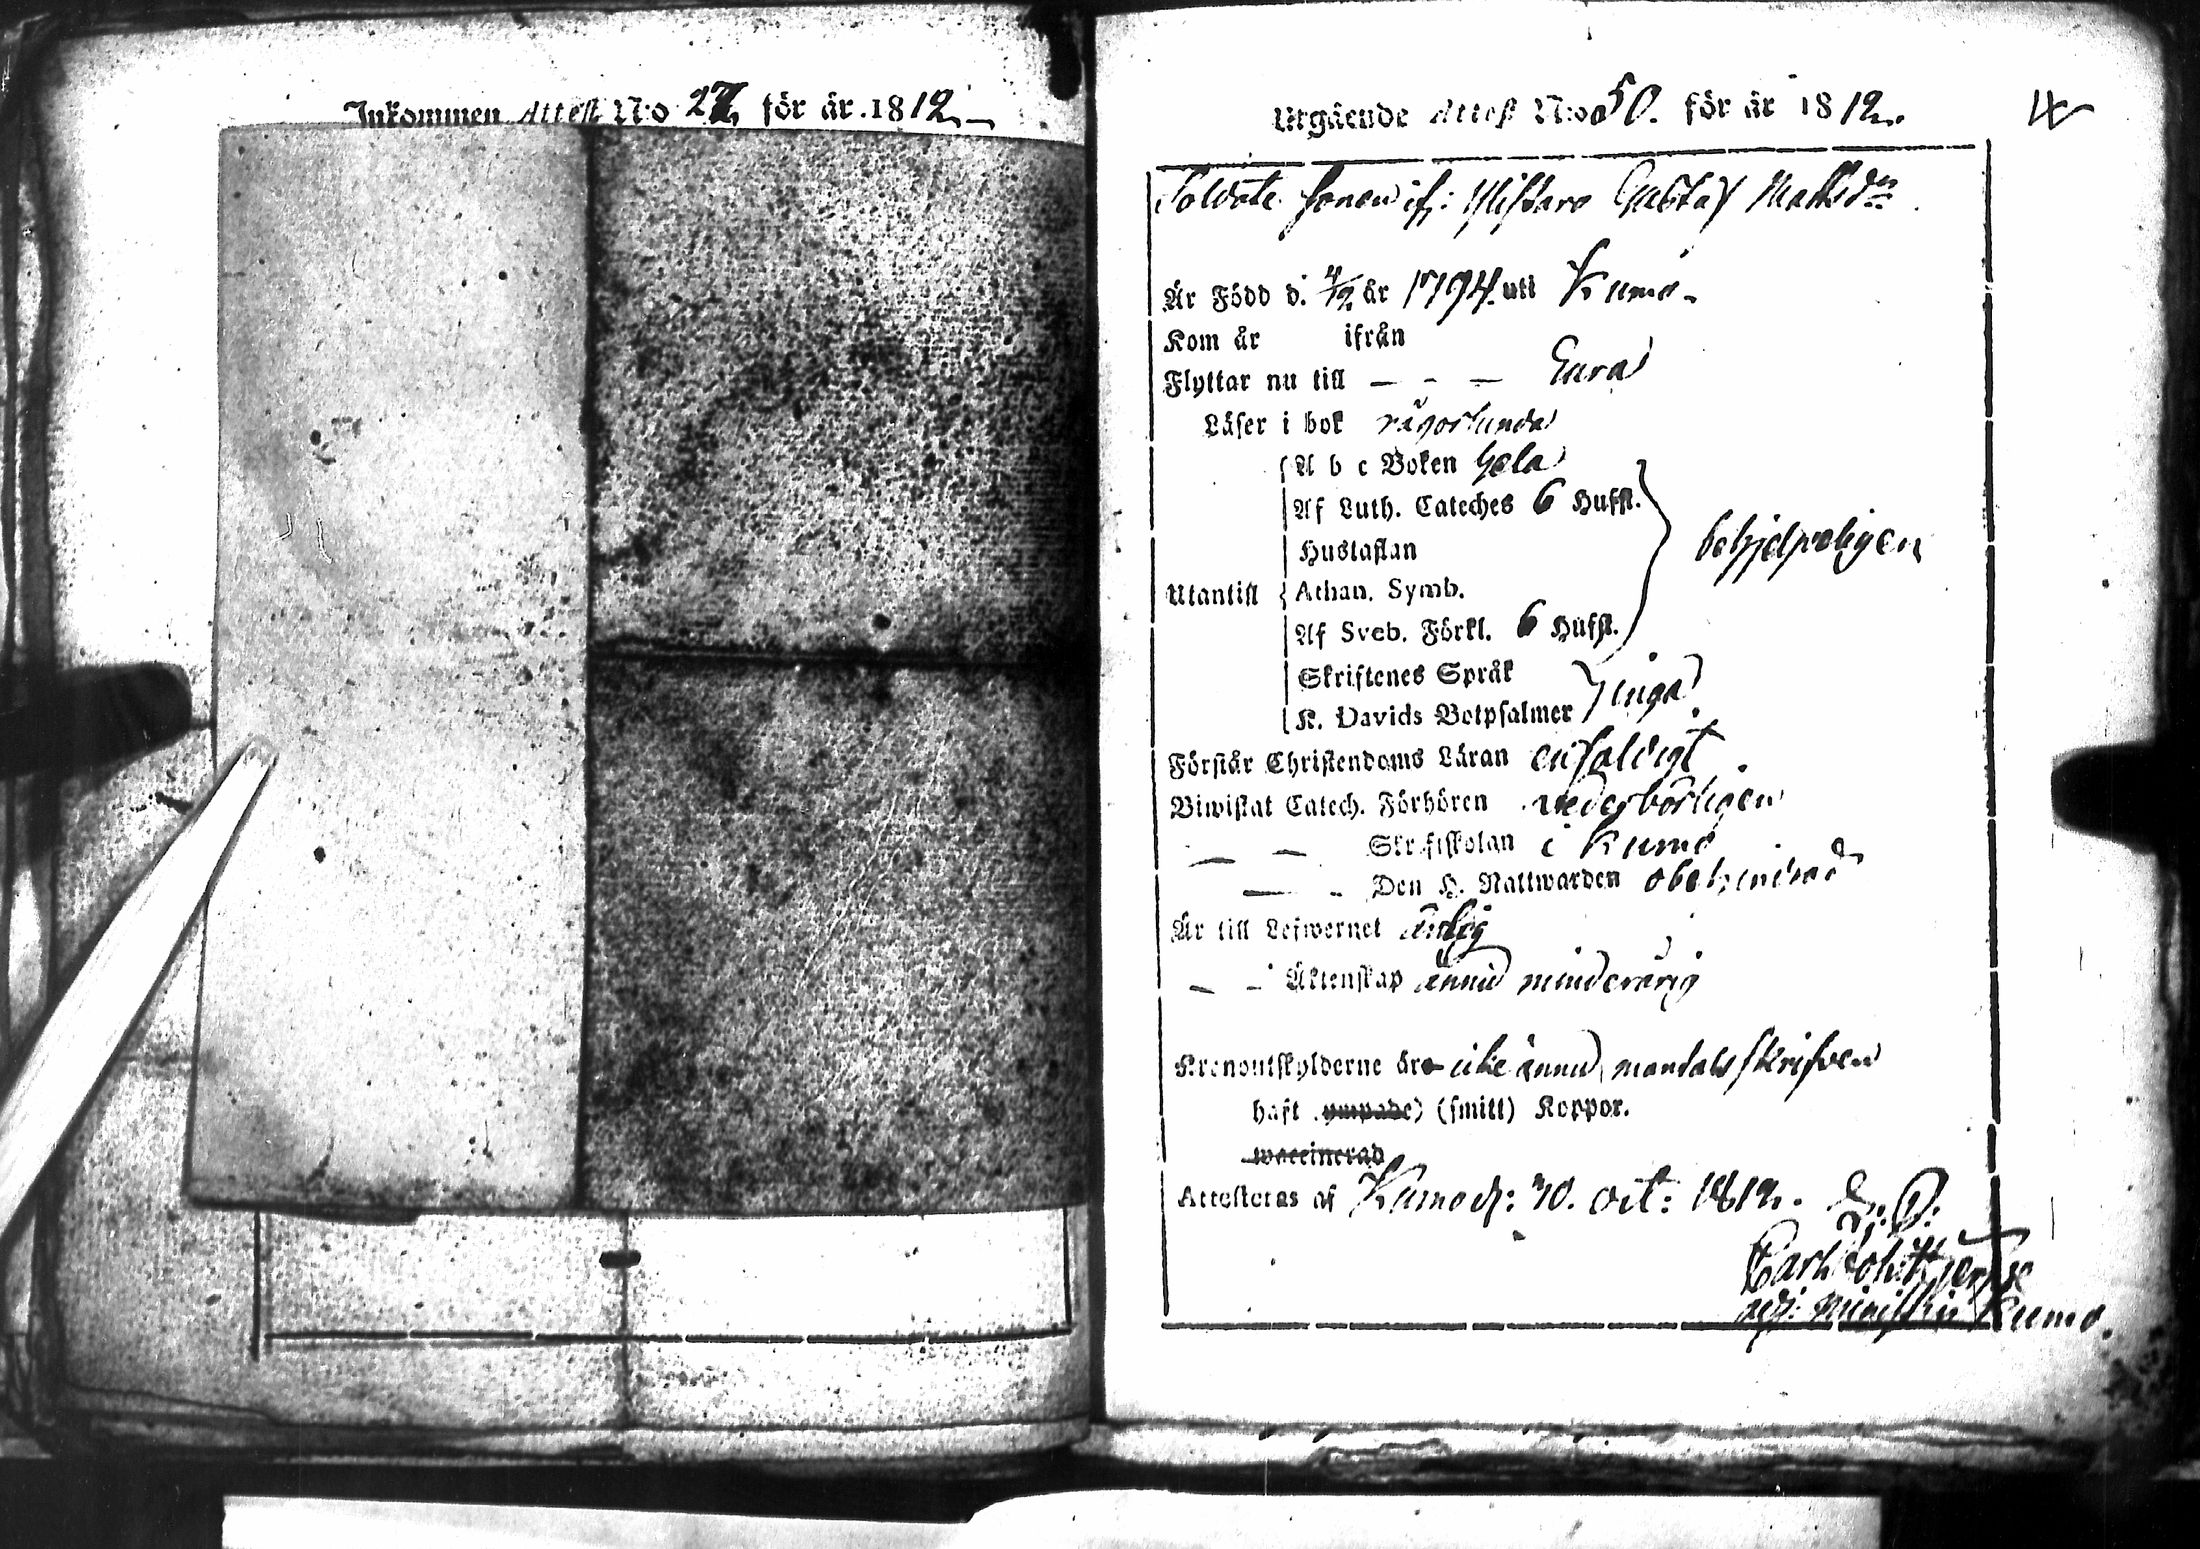 Inkommen Attest N:o 27 för år 1812.
Utgående Attest N:o 50. för år 1812.
Soldate sonen if: Ylistaro Gustaf Matsson
Är Född d. 4/2 år 1794. uti Kumo.
Kom år ifrån
Flyttar nu till — - — Eura
Läser i bok någorlunda
A b c Boken hela
Af Luth. Cateches 6 Hufst.
Hustaflan
behjelpeligen
Utantill Athan. Symb.
Af Sveb. Förkl. 6 Hufst.
Skriftenes Språk
inga
K. Davids Botpsalmer
Förstår Christendoms Läran enfaldigt
Biwistat Catech. Förhören vederbörligen
— — Skriftskolan i Kumo
— - Den H. Nattwarden obehindrad
Är till Lefwernet ärlig
— - Äktenskap ännu minderårig
Kronoutskylderne äro icke ännu mantals skrifven
haft ympade) (smitt) Koppor.
waccinerad
Attesteras af Kumo d: 30. oct: 1812.
Carl
adj: Kumo.